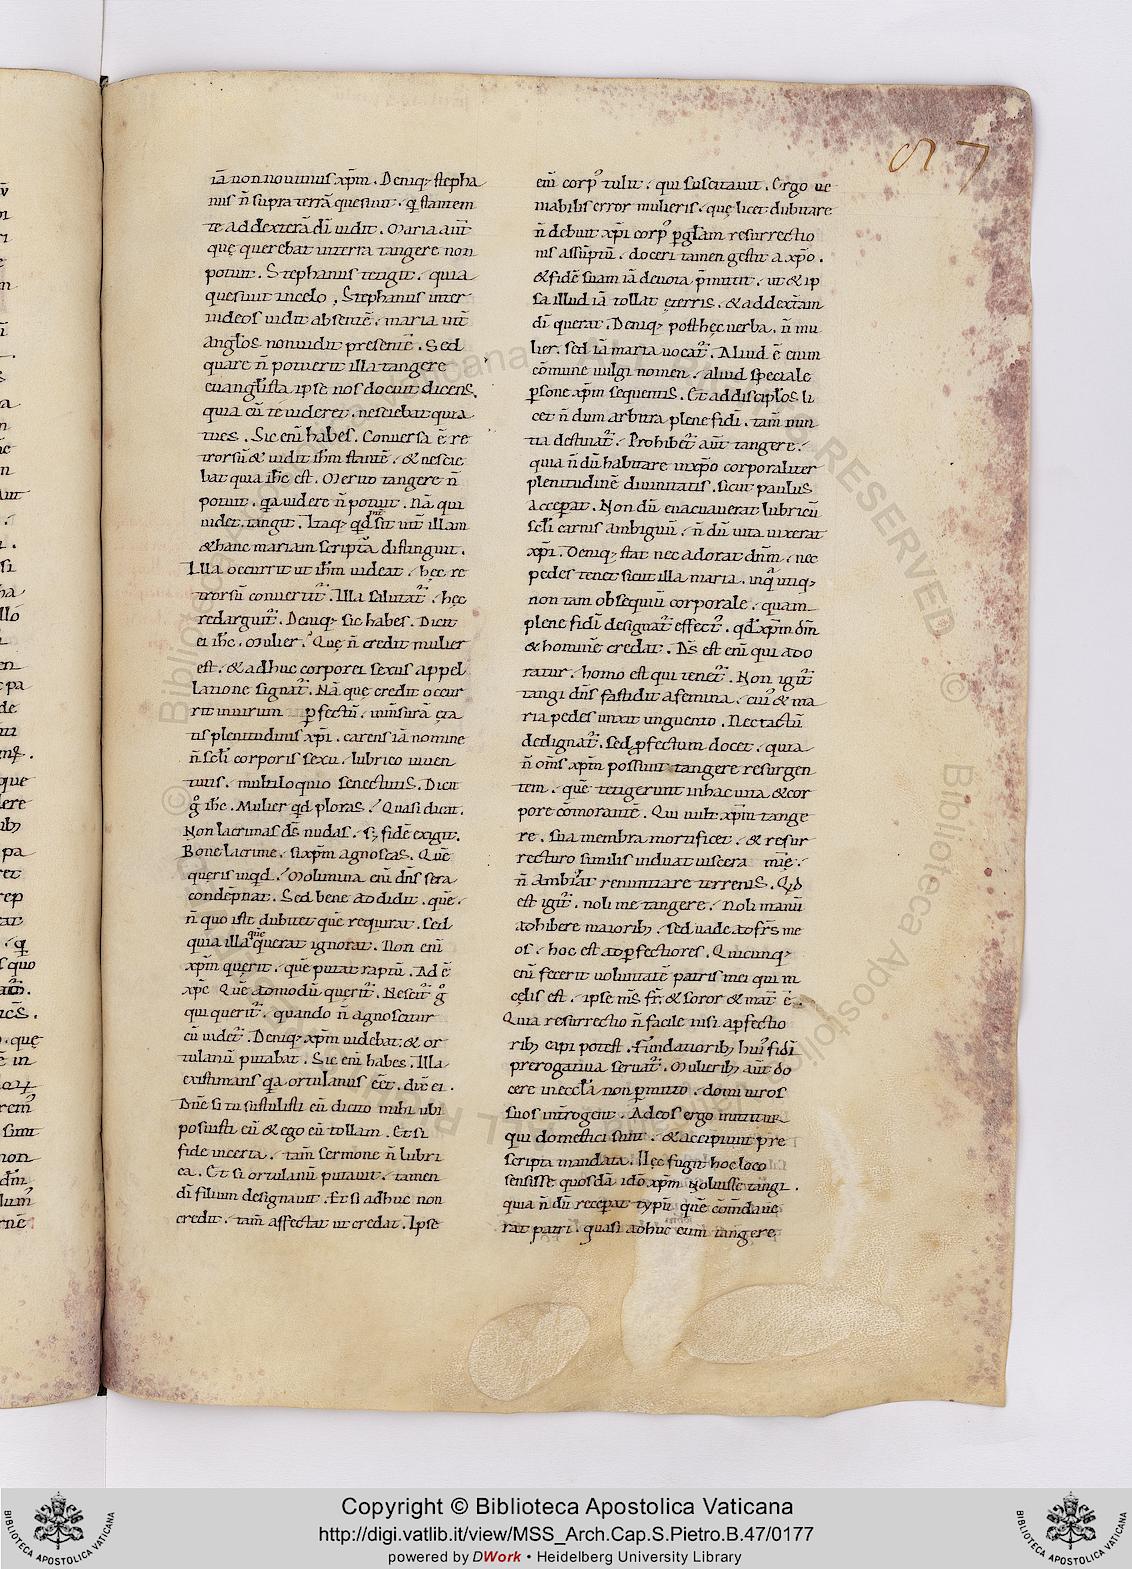 87
iā non nouimus xp̄m. Deniq; stepha
nus n̄ supra terrā quesiuit. q̇ stantem
te ad dexterā dī uidit. Maria aut̄
quę querebat in terra tangere non
potuit. Stephanus tetigit. quia
quesiuit in celo. Stephanus inter
iudeos uidit absentē. maria int̄
anglos non uidit presentē. Sed
quare n̄ potuerit illa tangere
euangl'ista ipse nos docuit dicens.
quia cū te uideret. nesciebat quia
tu es. Sic enī habes. Conuersa ē re
trorsū & uidit ihm̄ stantē. & nescie
bat quia ihc̄ est. Merito tangere n̄
potuit. q̇a uidere n̄ potuit. Nā qui
uidet. tangit. Itaq; qd̄ sit int̄ illam
& hanc mariam scriptᵃ distinguit.
Illa occurrit ut ihm̄ uideat. hęc re
trorsū conuertit᷑. Illa salutat᷑. hęc
redarguit᷑. Deniq; sic habes. Dicit
ei ihc̄. Mulier. Quę n̄ credit mulier
est. & adhuc corporei sexus appel
latione signat᷑. Nā quę credit occur
rit in uirum perfectū. in m̄surā ęta
tis plenitudinis xp̄i. carens iā nomine
n̄ sc̄li corporis sexu. lubrico iuuen
tutis. multiloquio senectutis. Dicit
g̊ ihc̄. Mulier qd̄ ploras. Quasi dicat.
Non lacrimas dš nudas. s; fidē exigit.
Bone lacrime. si xp̄m agnoscas. Quē
queris inqd̄. Molimina enī dn̄s sera
condēpnat. Sed bene addidit. quē.
n̄ quo iste dubitet quē requirat. sed
quia illa que querat ignorat. Non enī
xp̄m querit. quē putat raptū. Ad ē
xpc̄ Quē ad modū querit᷑. Nescit᷑ g̊
qui querit᷑. quando n̄ agnoscitur
cū uidet᷑. Deniq; xp̄m uidebat. & or
tulanū putabat. Sic enī habes. Illa
existimans q̇a ortulanus ēet. dix̄ ei.
Dn̄e si tu sustulisti eū dicito mihi ubi
posuisti eū & ego eū tollam. Et si
fide incerta. tam̄ sermone n̄ lubri
ca. Et si ortulanū putauit. tamen
dī filium designauit. Et si adhuc non
credit. tam̄ affectat ut credat. Ipse
enī corp᾿ tulit. qui suscitauit. Ergo ue
niabilis error mulieris. quę licet dubitare
n̄ debuit xp̄i corp᾿ p gl̄am resurrectio
nis assūptū. doceri tamen gestit a xp̄o.
& fidē suam iā deuota p̄mittit. ut & ip
sa illud iā tollat ęterris. & ad dext̄am
dī querat. Deniq; post hęc uerba. n̄ mu
lier. sed iā maria uocat᷑. Aliud ē enim
cōmune uulgi nomen. aliud speciale
persone xp̄m sequentis. Et ad discipl'os li
cet n̄ dum arbitra plene fidī. tam̄ nun
tia destinat᷑. Prohibet᷑ aut̄ tangere.
quia n̄ dū habitare in xp̄o corporaliter
plenitudinē diuinitatis. sicut paulus
acceperat. Non dū euacuauerat lubricū
sc̄li carnis ambiguū. n̄ dū uita uixerat
xp̄i. Deniq; stat nec adorat dn̄m. nec
pedes tenet sicut illa maria. in qᵃ utiq;
non tam obsequiū corporale. quam
plene fidī designat᷑ effect᾿. qd̄ xp̄m dm̄
& hominē credat. Dš est enī qui ado
ratur. homo est qui tenet᷑. Non igit᷑
tangi dn̄s fastidit a femina. cui᾿ & ma
ria pedes unxit unguento. Nec tactū
dedignat᷑. sed perfectum docet. quia
n̄ om̄s xp̄m possunt tangere resurgen
tem. quē tetigerunt in hac uita & cor
pore cōmorantē. Qui uult xp̄m tange
re. sua membra mortificet. & resur
recturo similis induat uiscera mīę.
n̄ ambi&at renuntiare terrenis. Qd̄
est igit᷑. noli me tangere. Noli manū
adhibere maiorib;. sed uade ad fr̄s me
os. hoc est ad perfectiores. Quicunq;
enī fecerit uoluntatē patris mei qui in
cęlis est. ipse m̄s fr̄. & soror & mat̄ ē.
Quia resurrectio n̄ facile nisi a perfectio
rib; capi potest. Fundatiorib; hui᾿ fidī
prerogatiua seruat᷑. Mulierib; aut̄ do
cere in eccl̄a non permitto. domi uiros
suos int̄rogent. Ad eos ergo mittitur
qui domestici sunt. & accipiunt pre
scripta mandata. Nec fugit hoc loco
sensisse quosdā. ideo xp̄m noluisse tangi.
quia n̄ dū receperat typū. quē cōm̄daue
rat patri. quasi adhuc eum tangere
Copyright © Biblioteca Apostolica Vaticana
http://digi.vatlib.it/view/MSS_Arch.Cap.S.Pietro.B.47/0177
powered by DWork • Heidelberg University Library